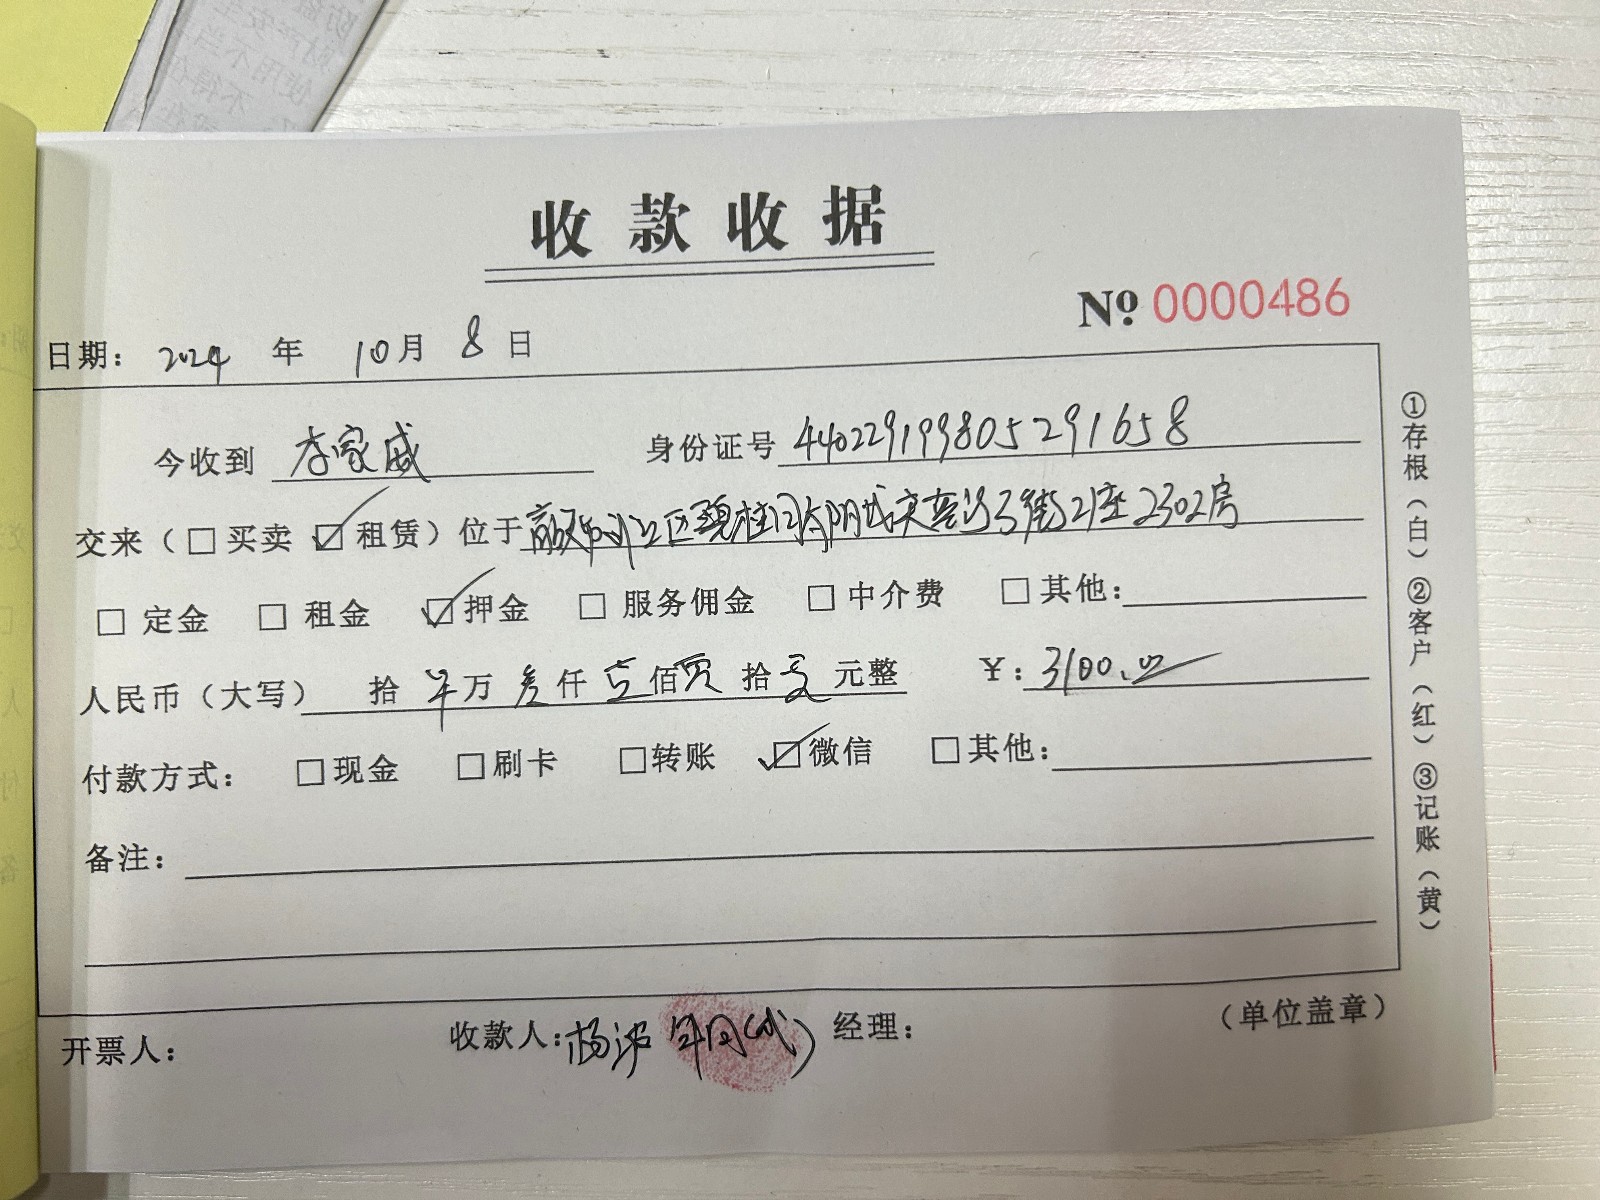 收款收据
№ 0000486
日期： 2024 年 10月 8 日
今收到 李家威 身份证号 440229199805291658
交来（□买卖 ☑租赁）位于 区 街21座2302房
□ 定金 □ 租金 ☑押金 □ 服务佣金 □ 中介费 □ 其他：
人民币（大写） 拾 万 叁仟 壹佰 零拾 零元整 ¥：3100.00
付款方式： □现金 □刷卡 □转账 ☑微信 □其他：
备注：
开票人： 收款人：杨 （代） 经理： （单位盖章）
①存根（白）②客户（红）③记账（黄）